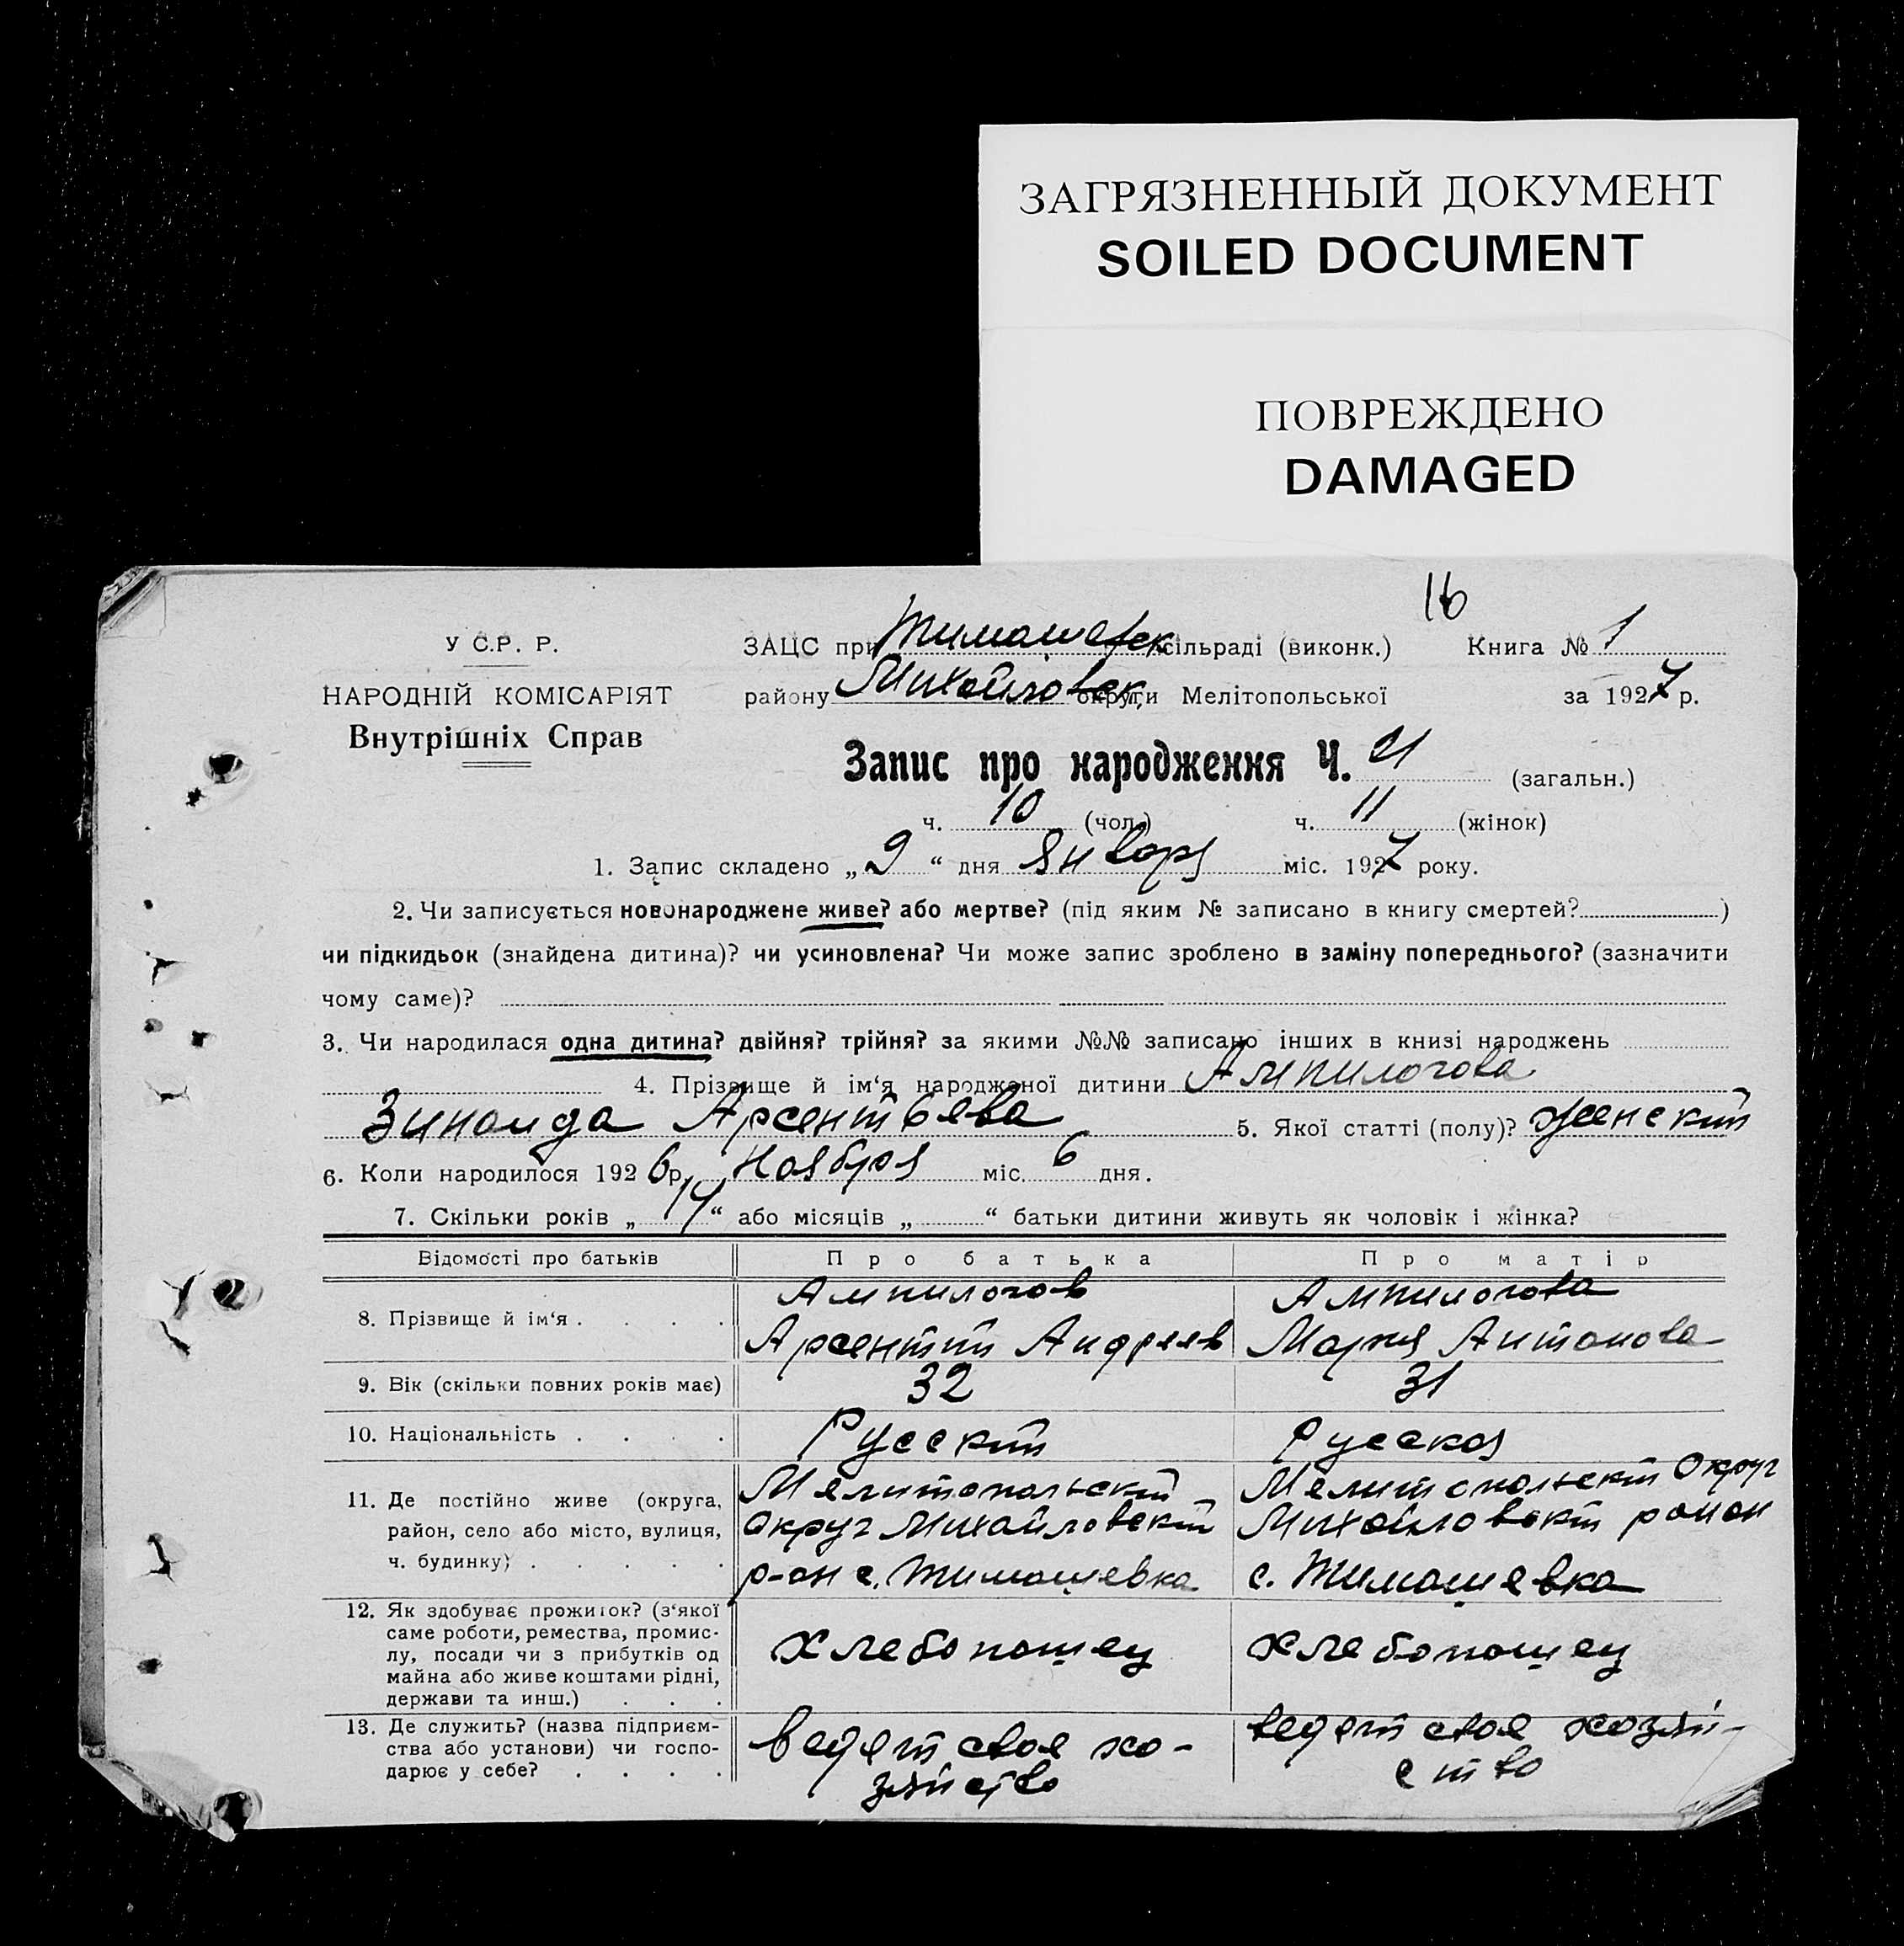 ЗАГРЯЗНЕННЫЙ ДОКУМЕНТ
SOILED DOCUMENT
ПОВРЕЖДЕНО
DAMAGED
16
У С.Р. Р.
ЗАЦС при Тимашевск сільраді (виконк.) Книга № 1
НАРОДНІЙ КОМІСАРІЯТ
району Михайловск. округи Мелітопольської за 1927 р.
Внутрішніх Справ
Запис про народження Ч. 21 (загальн.)
ч. 10 (чол.) ч. 11 (жінок)
1. Запис складено „ 9 “ дня Января міс. 1927 року.
2. Чи записується новонароджене живе? або мертве? (під яким № записано в книгу смертей? )
чи підкидьок (знайдена дитина)? чи усиновлена? Чи може запис зроблено в заміну попереднього? (зазначити
чому саме)?
3. Чи народилася одна дитина? двійня? трійня? за якими №№ записано інших в книзі народжень
4. Прізвище й ім‘я народженої дитини Ампилогова
Зинаида Арсентьева 5. Якої статті (полу)? женский
6. Коли народилося 1926 р. Ноября міс. 6 дня.
7. Скільки років „ 14 “ або місяців „ “ батьки дитини живуть як чоловік і жінка?
Відомості про батьків Про батька Про матір
8. Прізвище й ім‘я . . . . Ампилогов Арсентий Андреев Ампилогова Мария Антонова
9. Вік (скільки повних років має) 32 31
10. Національність . . . . Русский Русская
11. Де постійно живе (округа, Мелитопольский Мелитопольский Округ
район, село або місто, вулиця, Округ Михайловский Михайловский район
ч. будинку) . . . . . р-он с. Тимашевка с. Тимашевка
12. Як здобуває прожиток? (з‘якої
саме роботи, ремества, промис-
лу, посади чи з прибутків од Хлебопашец хлебопашец
майна або живе коштами рідні,
держави та инш.) . . .
13. Де служить? (назва підприєм- ведет свое хо- ведет свое хозяй-
ства або установи) чи госпо- зяйство ство
дарює у себе? . . . .